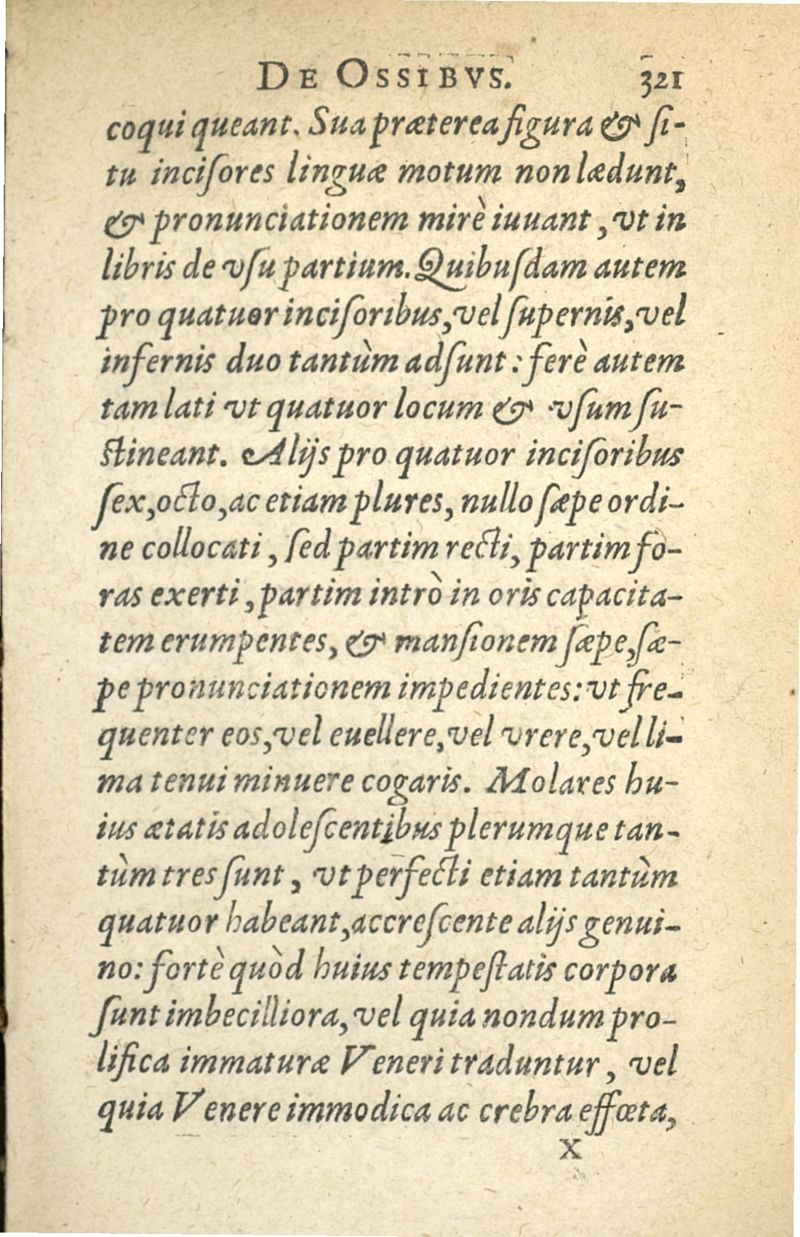 DE OSSIBVS. 321
coqui queant. Sua præterea figura & ſi-
tu inciſores linguæ motum non lædunt,
& pronunciationem mirè iuuant, vt in
libris de vſu partium. Quibuſdam autem
pro quatuor inciſoribus, vel ſupernis, vel
infernis duo tantùm adſunt: ferè autem
tam lati vt quatuor locum & vſum ſu-
ſtineant. Alijs pro quatuor inciſoribus
ſex, octo, ac etiam plures, nullo ſæpe ordi-
ne collocati, ſed partim recti, partim fo-
ras exerti, partim intrò in oris capacita-
tem erumpentes, & manſionem ſæpe, ſæ-
pe pronunciationem impedientes: vt fre-
quenter eos, vel euellere, vel vrere, vel li-
ma tenui minuere cogaris. Molares hu-
ius ætatis adoleſcentibus plerumque tan-
tùm tres ſunt, vt perfecti etiam tantùm
quatuor habeant, accreſcente alijs genui-
no: fortè quòd huius tempeſtatis corpora
ſunt imbecilliora, vel quia nondum pro-
lifica immaturæ Veneri traduntur, vel
quia Venere immodica ac crebra effœta,
X